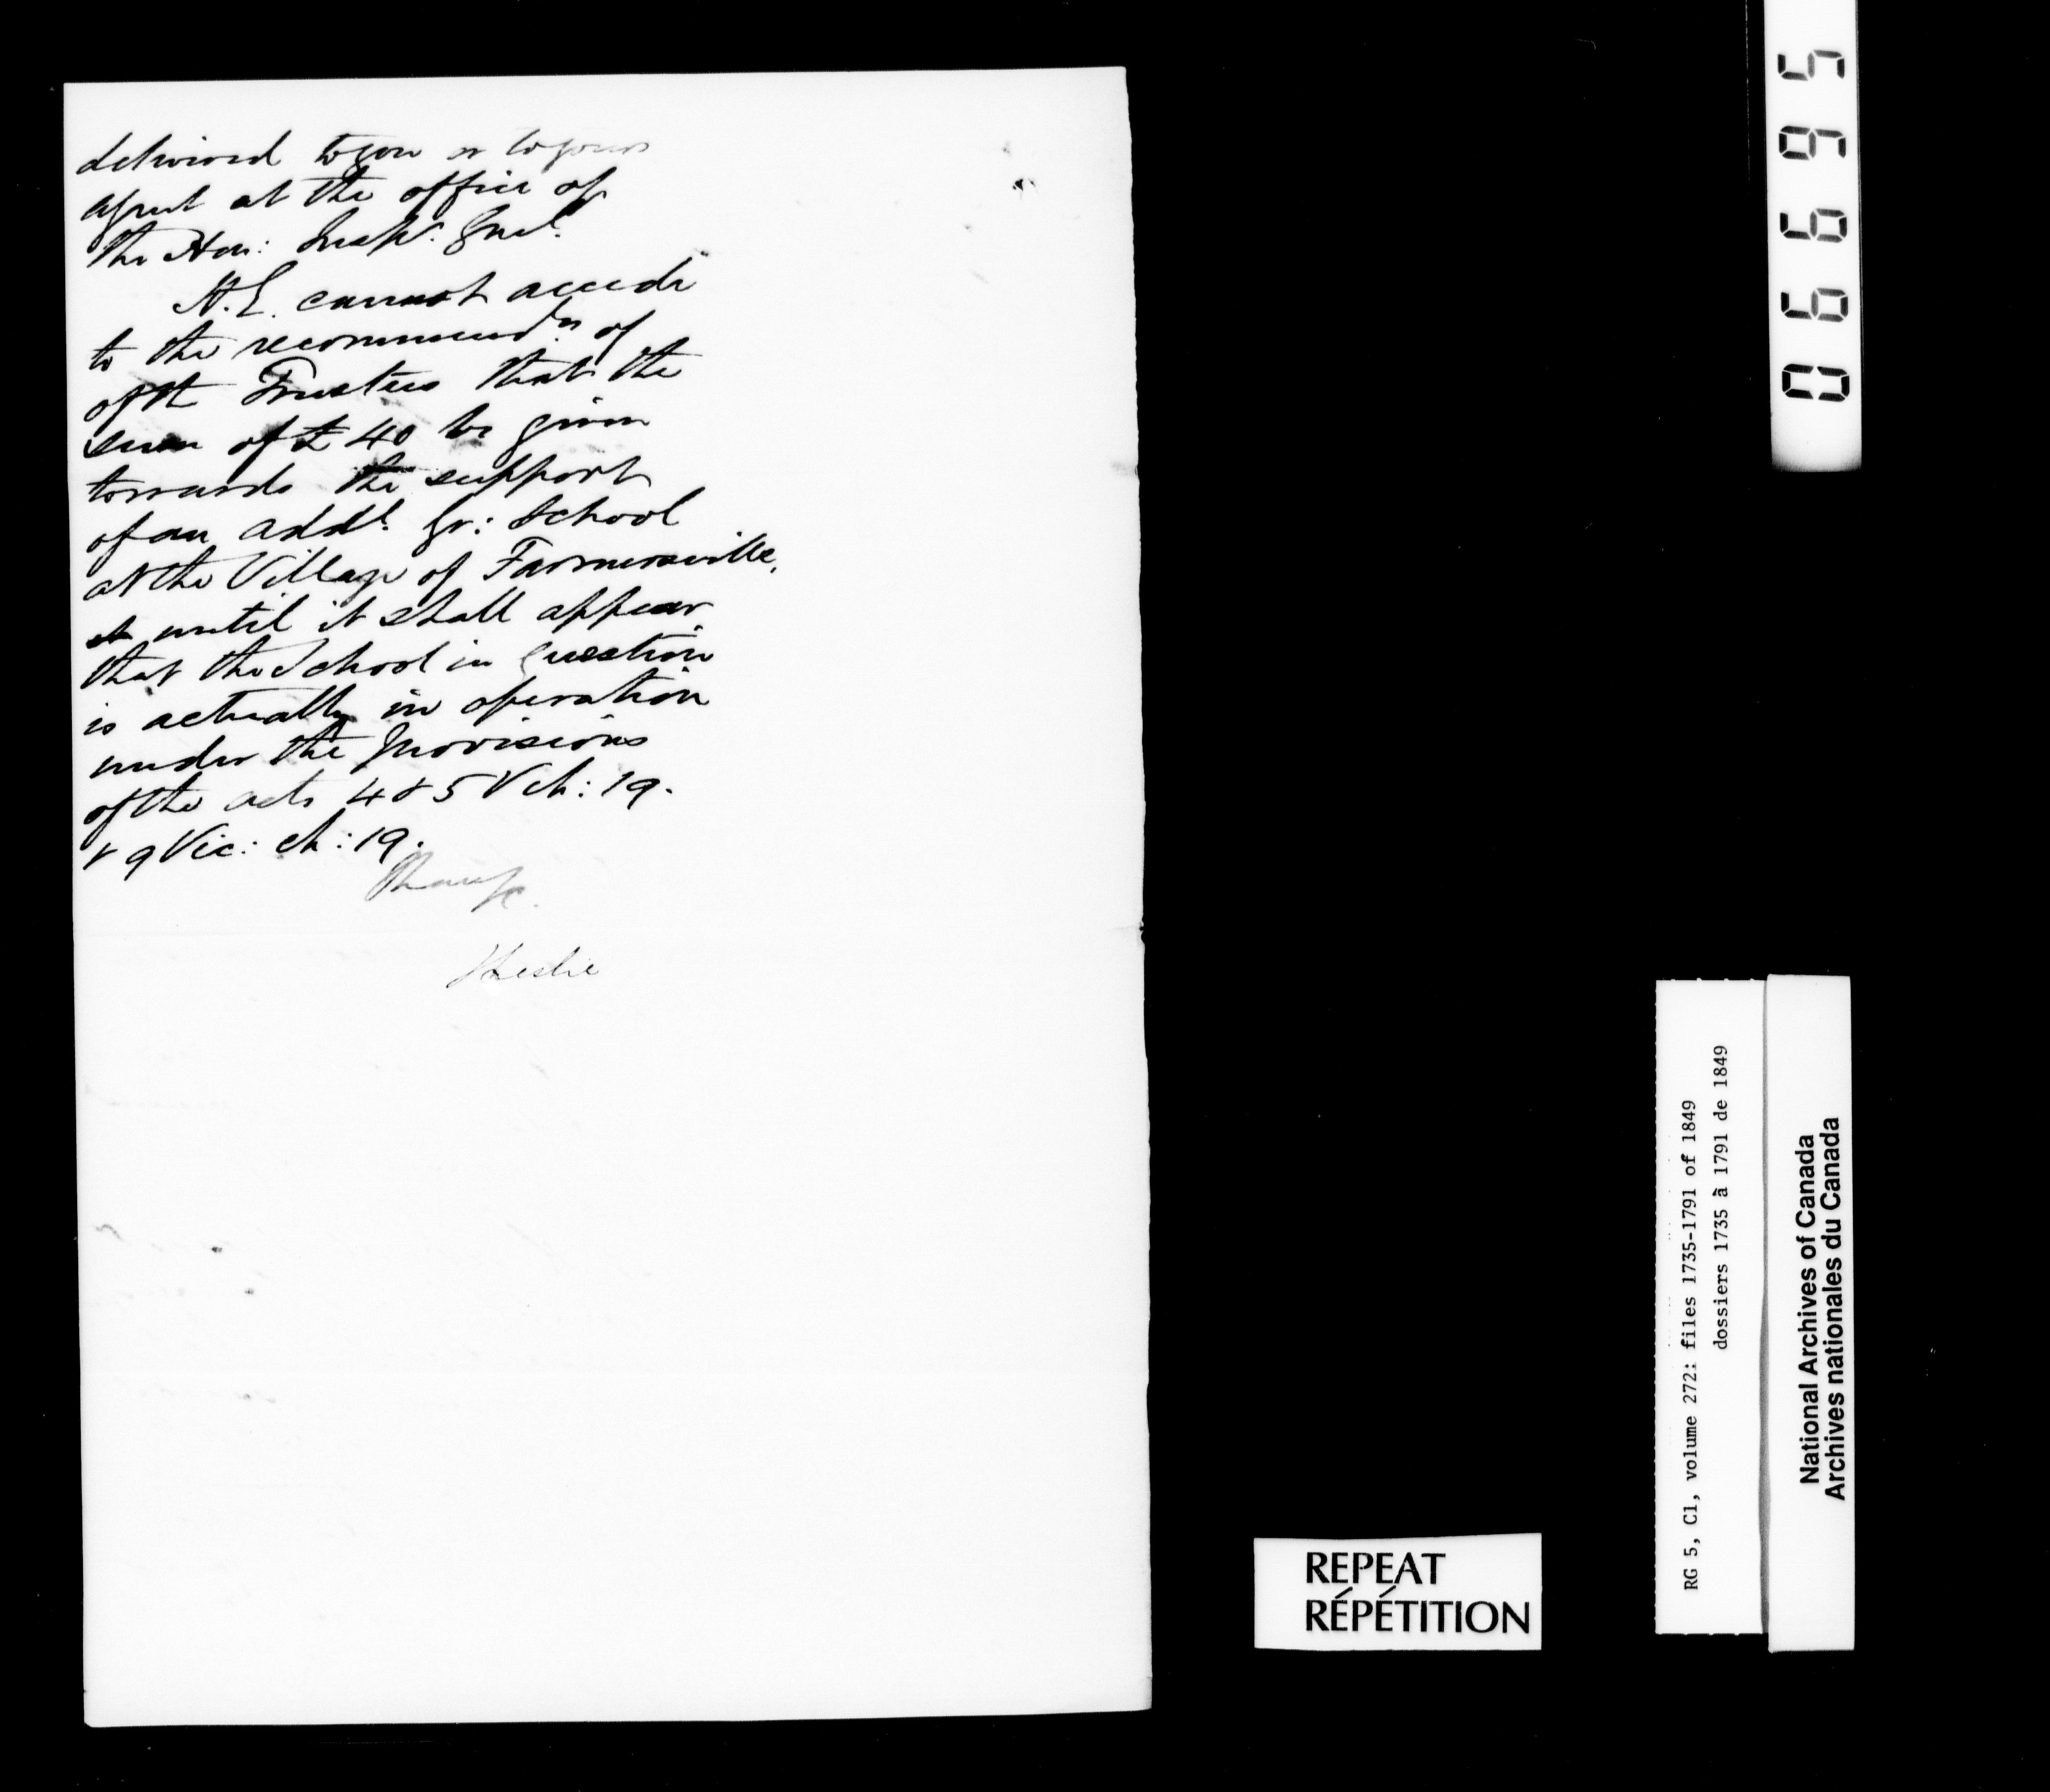 delivered to you or to your
agent at the office of
the Hon: Insp^r. Gen^l.
H.E. cannot accede
to the recommend^n. of
of the Trustees that the
sum of £40 be given
towards the support
of an add^l. Gr: School
at the Village of Farmersville,
until it shall appear
that the School in question
is actually in operation
under the provisions
of the acts 4 & 5 V ch: 19.
& 9 Vic: ch: 19.
I have &c.
J Leslie
06695
RG 5, C1, volume 272: files 1735-1791 of 1849
dossiers 1735 à 1791 de 1849
National Archives of Canada
Archives nationales du Canada
REPEAT
RÉPÉTITION